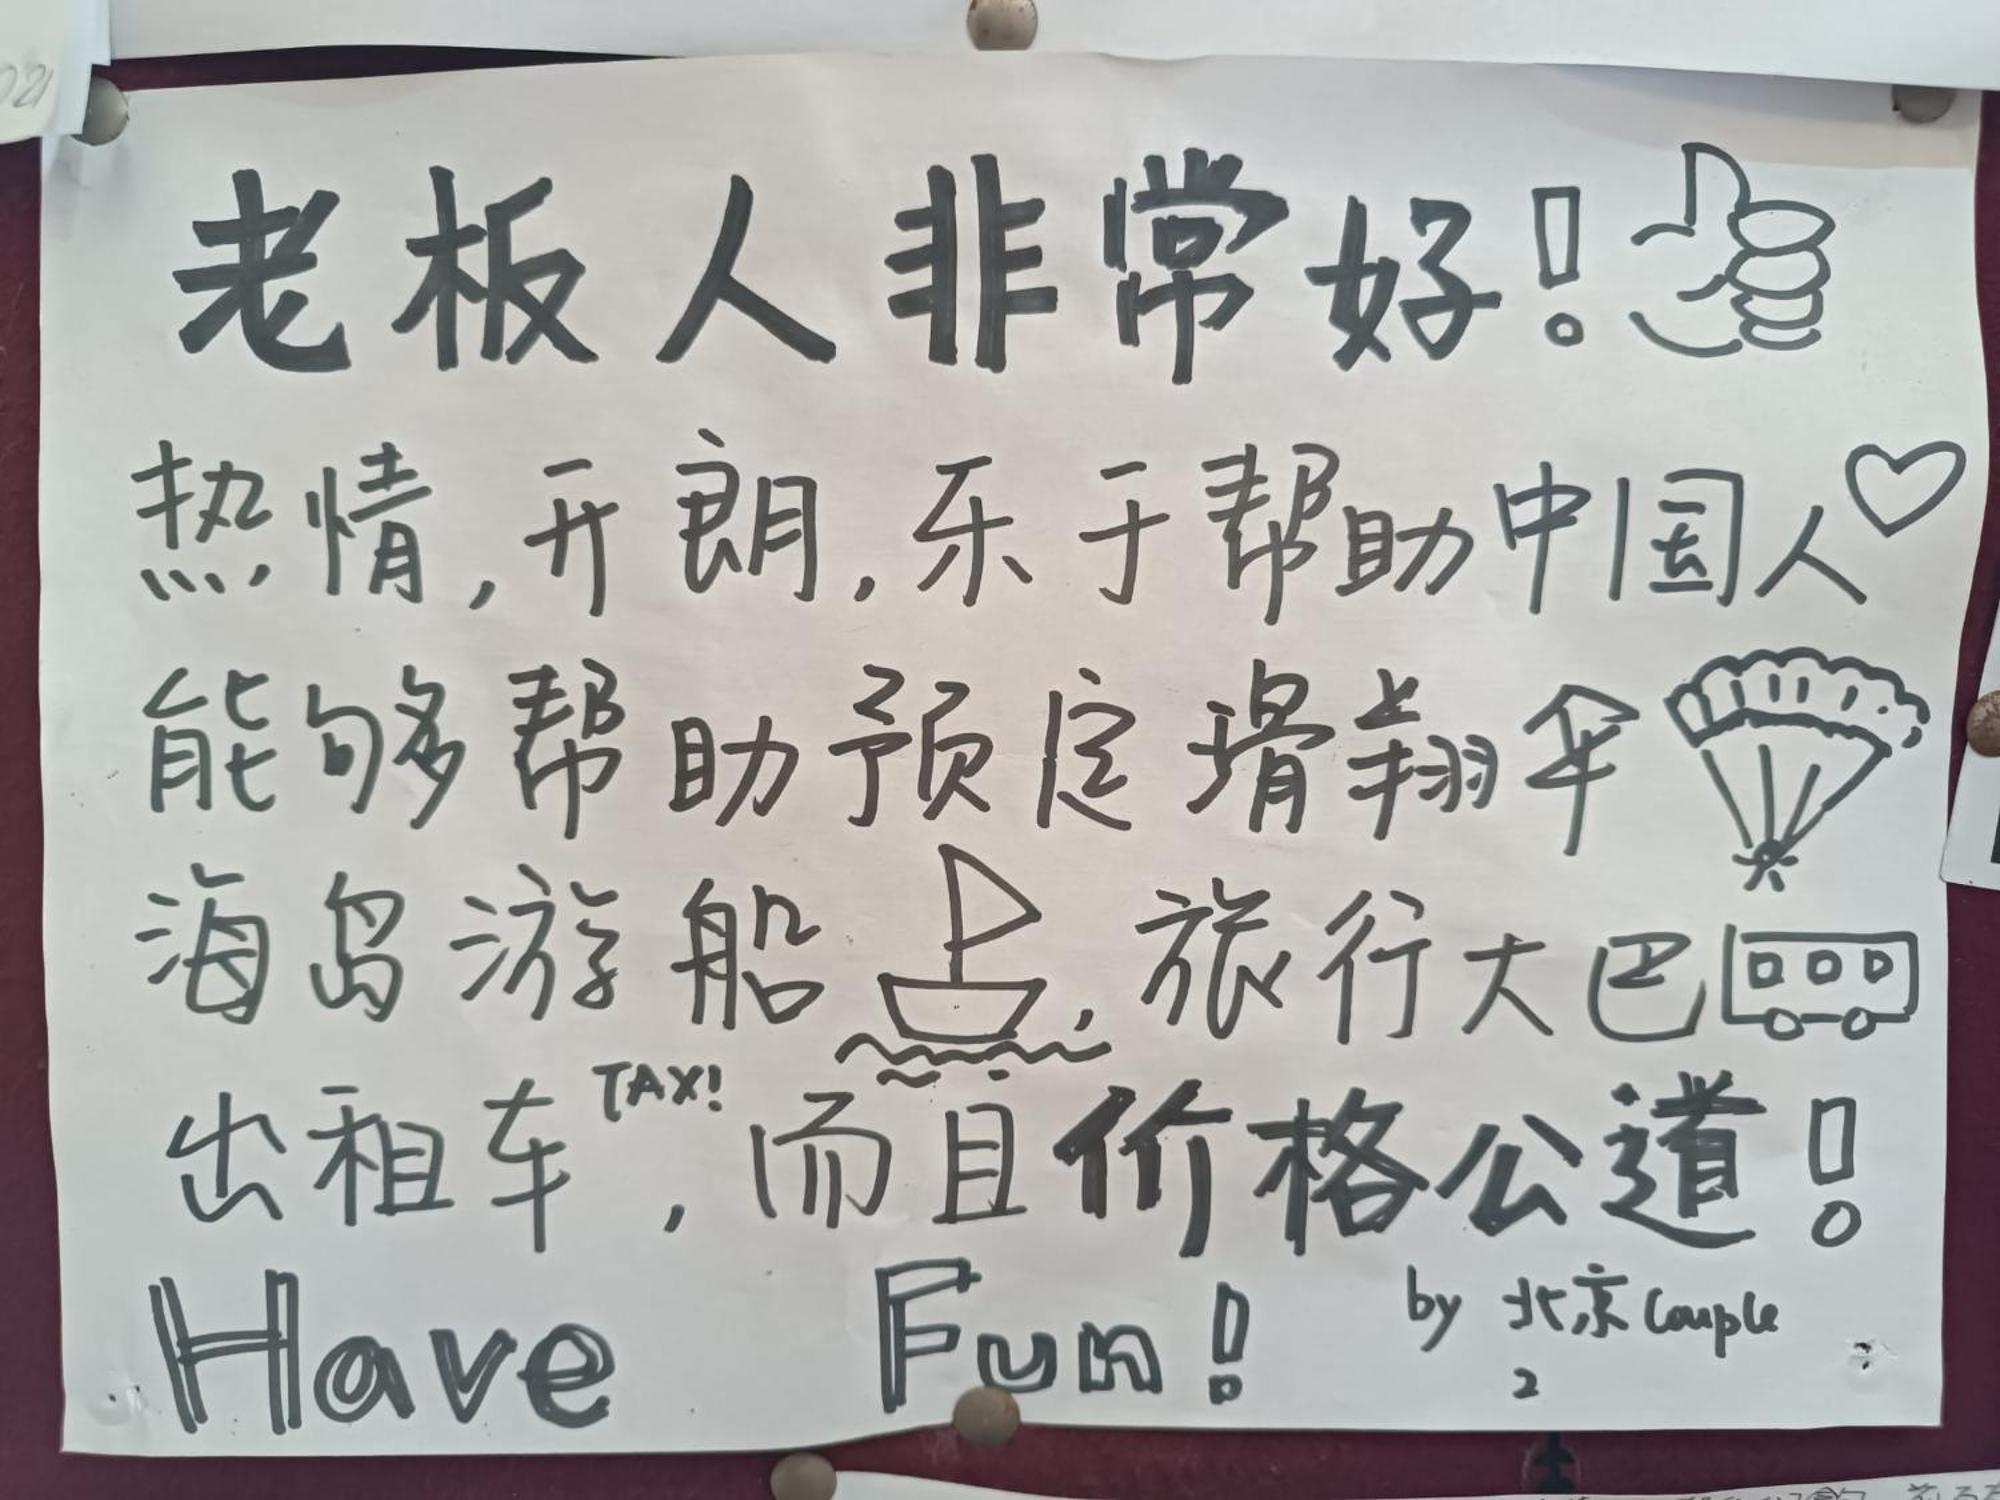 老板人非常好!
热情,开朗,乐于帮助中国人
能够帮助预定滑翔伞
海岛游船,旅行大巴
出租车TAX!,而且价格公道!
Have Fun! by 北京Couple
2